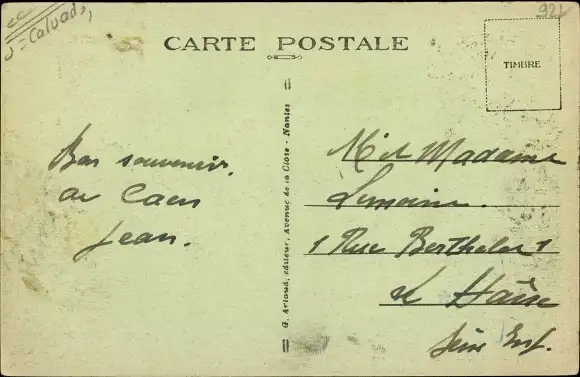 J = Calvados,
921
CARTE POSTALE
TIMBRE
Bon souvenir.
de Caen
Jean.
G. Artaud, éditeur, Avenue de la Close - Nantes
M et Madame
Lemaire.
1 Rue Berthelot 1
Le Hâvre
Seine Inf.